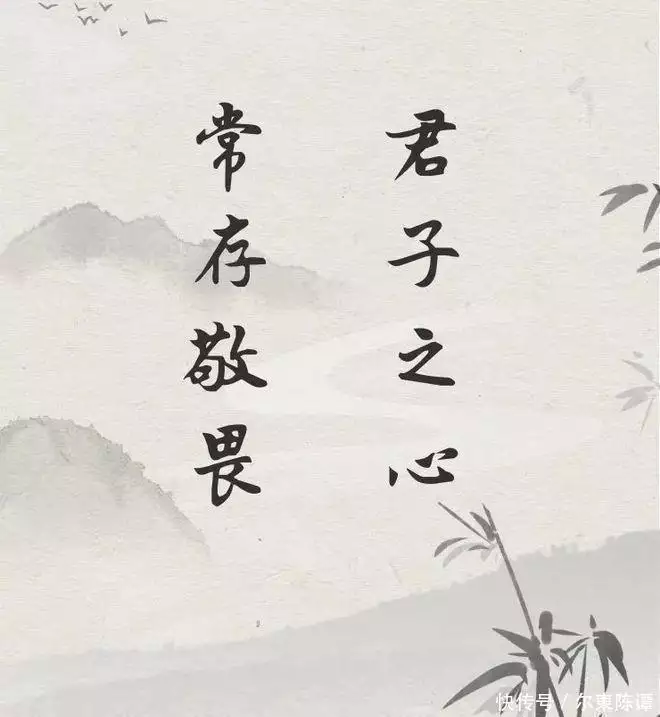 君子之心
常存敬畏
快传号/尔東陈谭